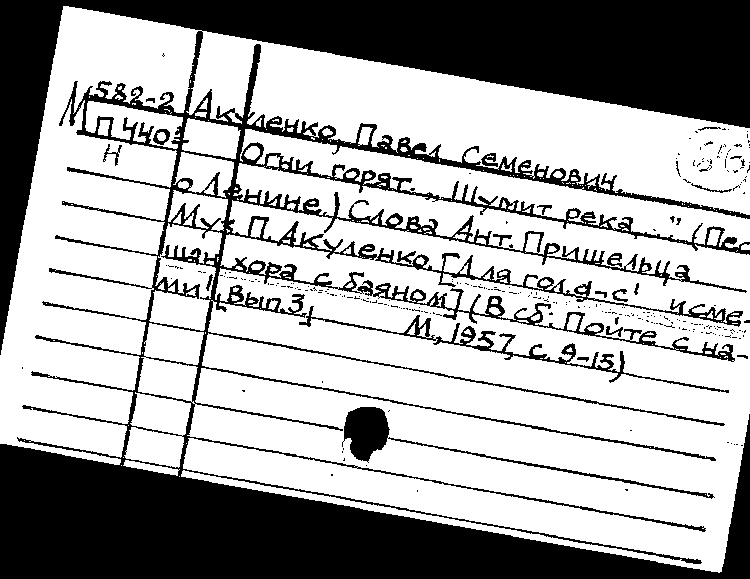 М 582-2 Акуленко, Павел Семенович.
П 440 Огни горят. „Шумит река..." (Пес
Н о Ленине) Слова Ант. Пришельца.
Муз. П. Акуленко. [Для гол. д-с' и сме-
шан хора с баяном] (В сб: Пойте с на-
ми! [Вып. 3] М., 1957, с. 9-15)